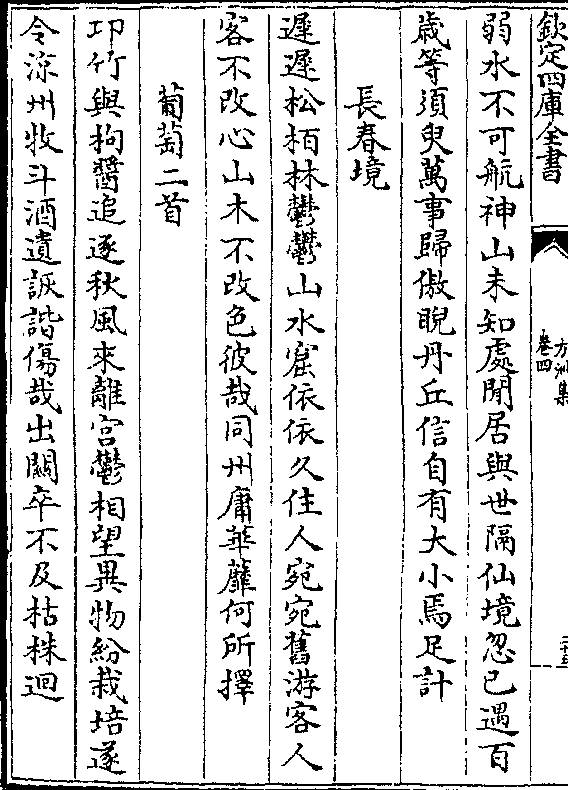 欽定四庫全書
方洲集
卷四
弱水不可航神山未知處閒居與世隔仙境忽已遇百
歲等須臾萬事歸傲睨丹丘信自有大小焉足計
長春境
遲遲松栢林鬱鬱山水窟依依久住人宛宛舊游客人
客不改心山木不改色彼哉同州庸華蘼何所擇
葡萄二首
邛竹與枸醬追逐秋風來離宮鬱相望異物紛栽培遂
令涼州牧斗酒遺詼諧傷哉出關卒不及枯株迴